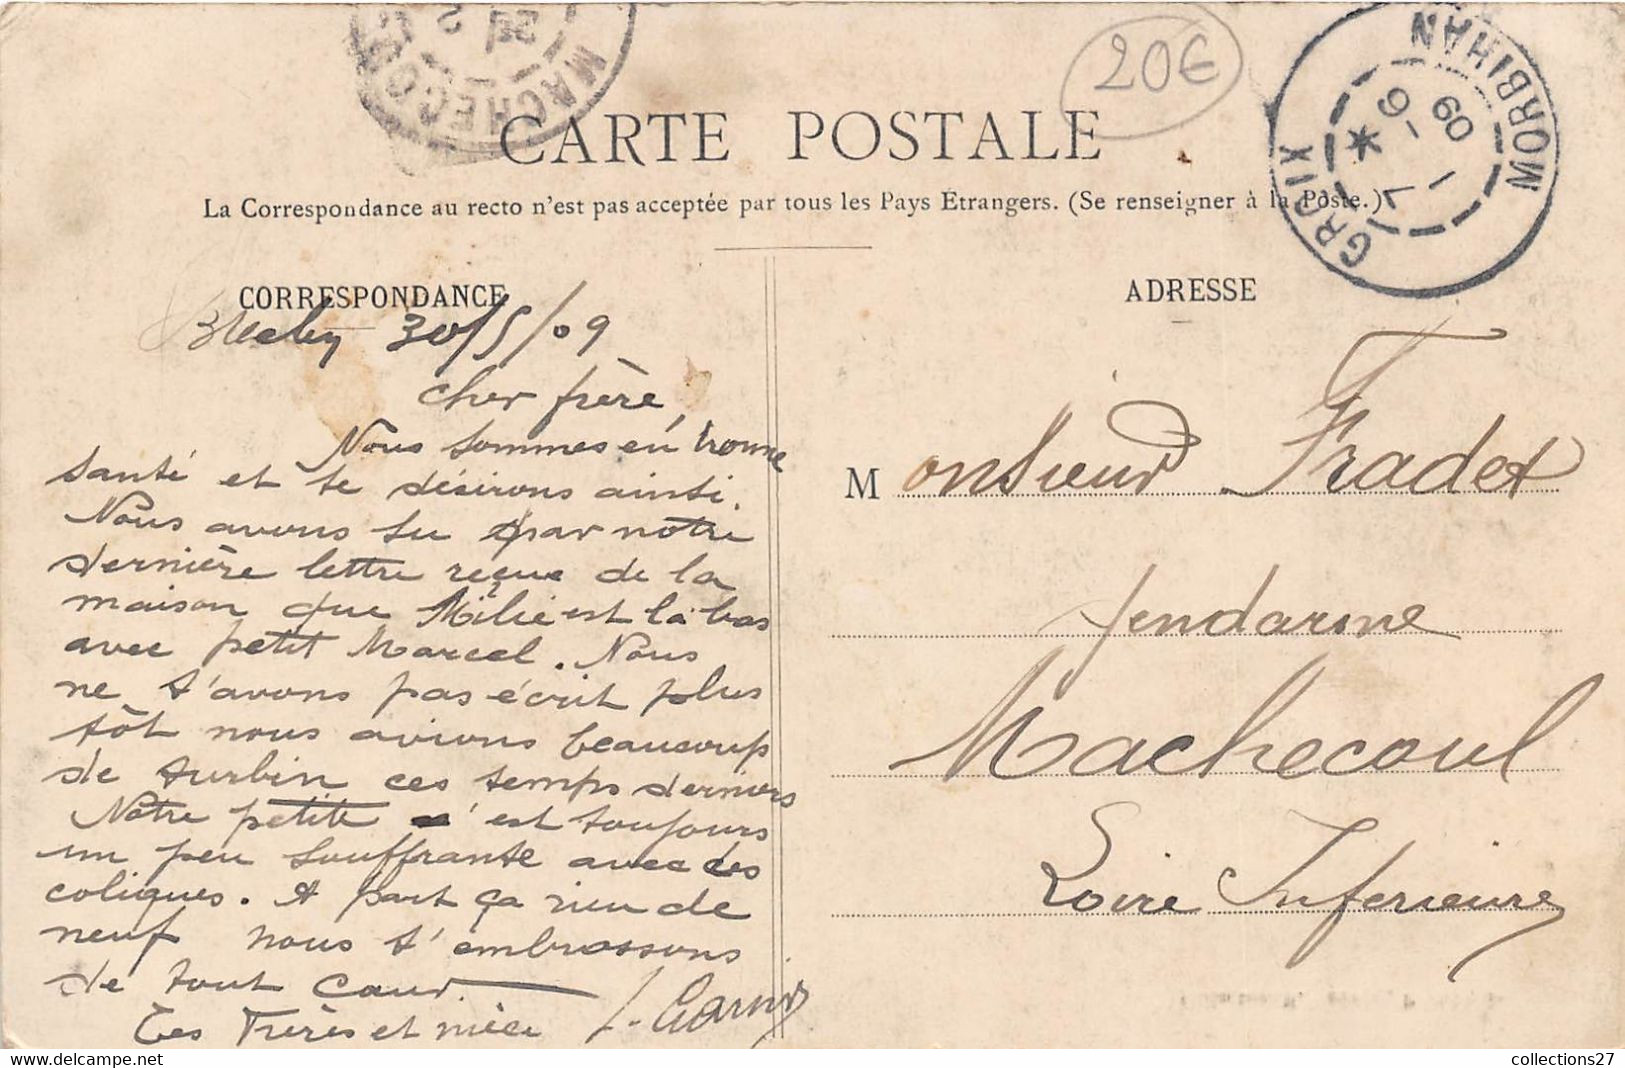 MACHECOUL
20€
GROIX MORBIHAN
7 1 -6 09
CARTE POSTALE
La Correspondance au recto n'est pas acceptée par tous les Pays Étrangers. (Se renseigner à la Poste.)
CORRESPONDANCE
30/5/09
cher frère,
Nous sommes en bonne
santé et te désirons ainsi.
Nous avons su par notre
dernière lettre reçue de la
maison que Milie est là bas
avec petit Marcel. Nous
ne t'avons pas écrit plus
tôt nous avions beaucoup
de turbin ces temps derniers
Notre petite est toujours
un peu souffrante avec des
coliques. A part ça rien de
neuf nous t'embrassons
de tout cœur.
Tes Frères et nièce
ADRESSE
Monsieur Fradet
Gendarme
Machecoul
Loire Inferieure
collections27